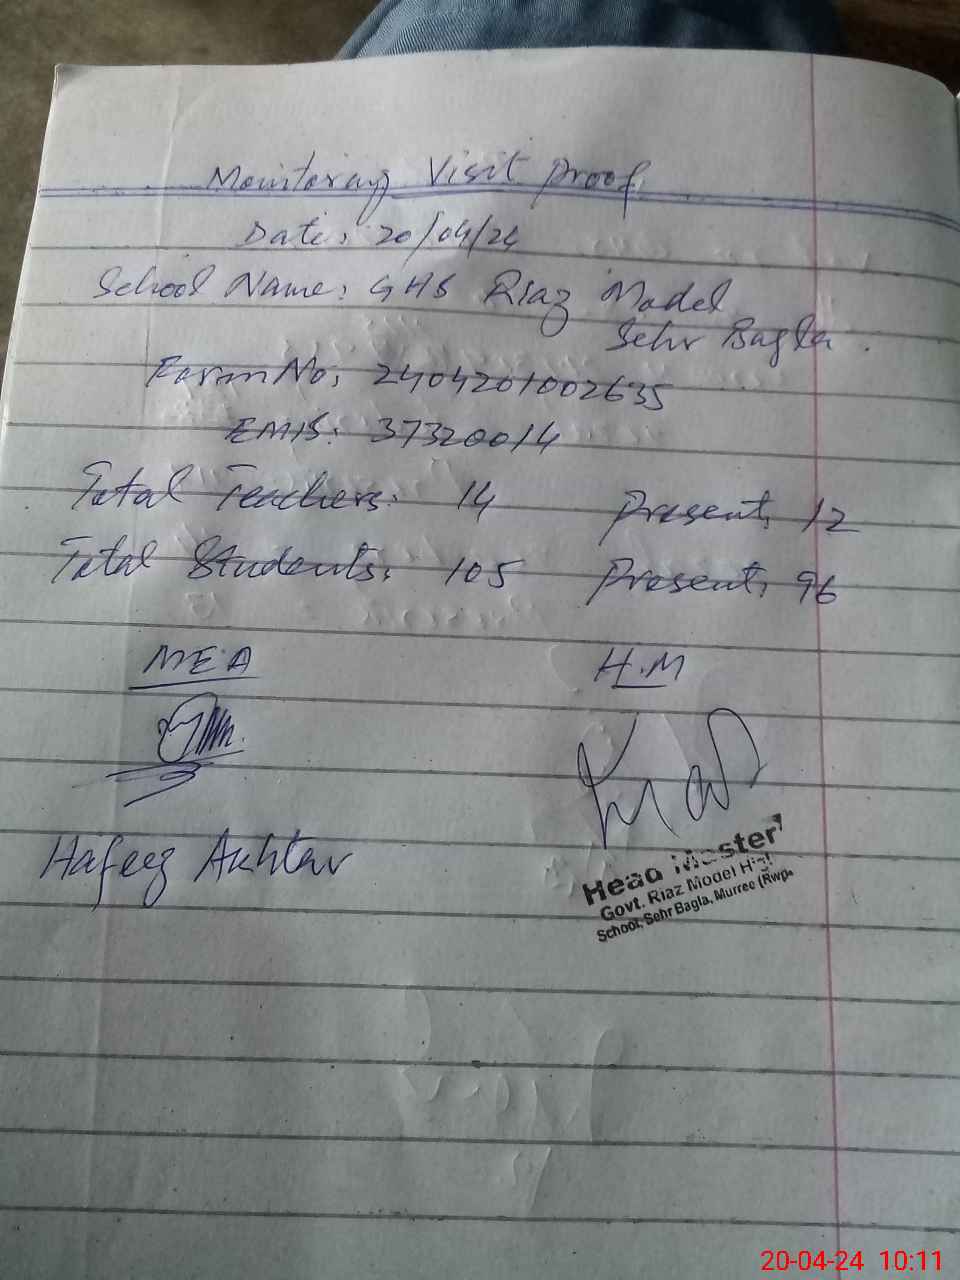 Monitoring Visit Proof
Date: 20/04/24
School Name: GHS Riaz Model
Sehr Bagla.
Form No: 2404201002635
EMIS: 37320014
Total Teachers: 14 Present: 12
Total Students: 105 Present: 96
MEA H.M
Hafeez Akhtar
Head Master
Govt. Riaz Model High
School, Sehr Bagla, Murree (Rwp.
20-04-24 10:11